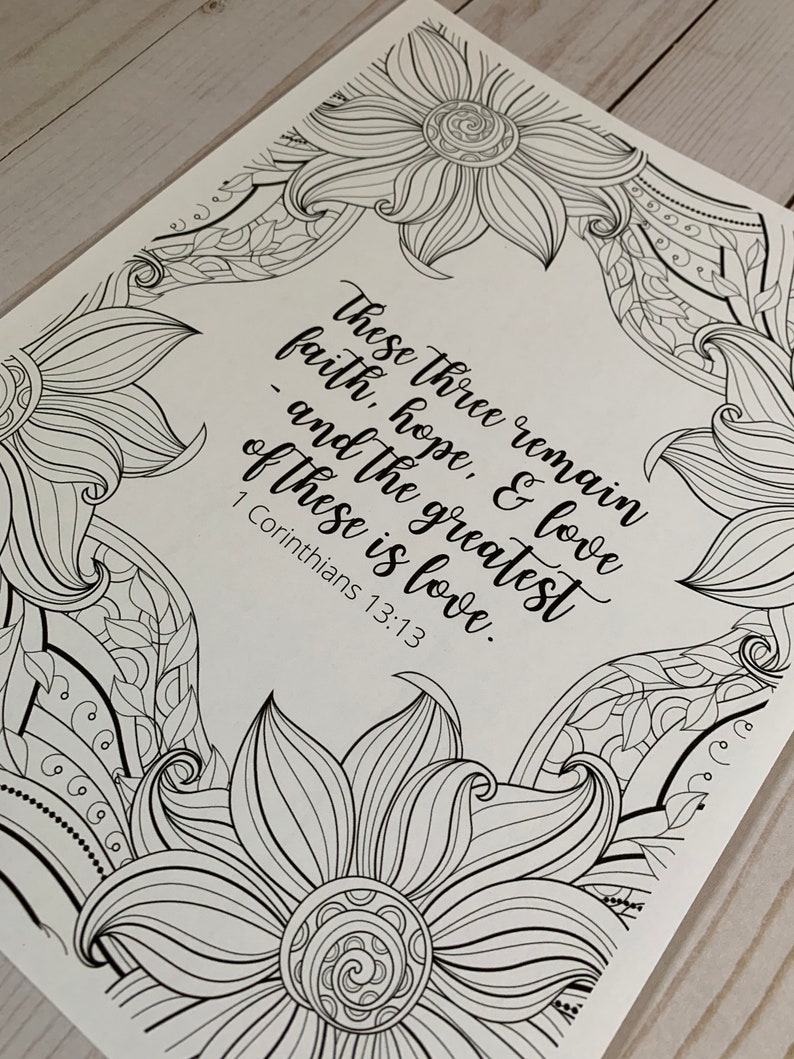 these three remain
faith, hope, & love
- and the greatest
of these is love.
1 Corinthians 13:13